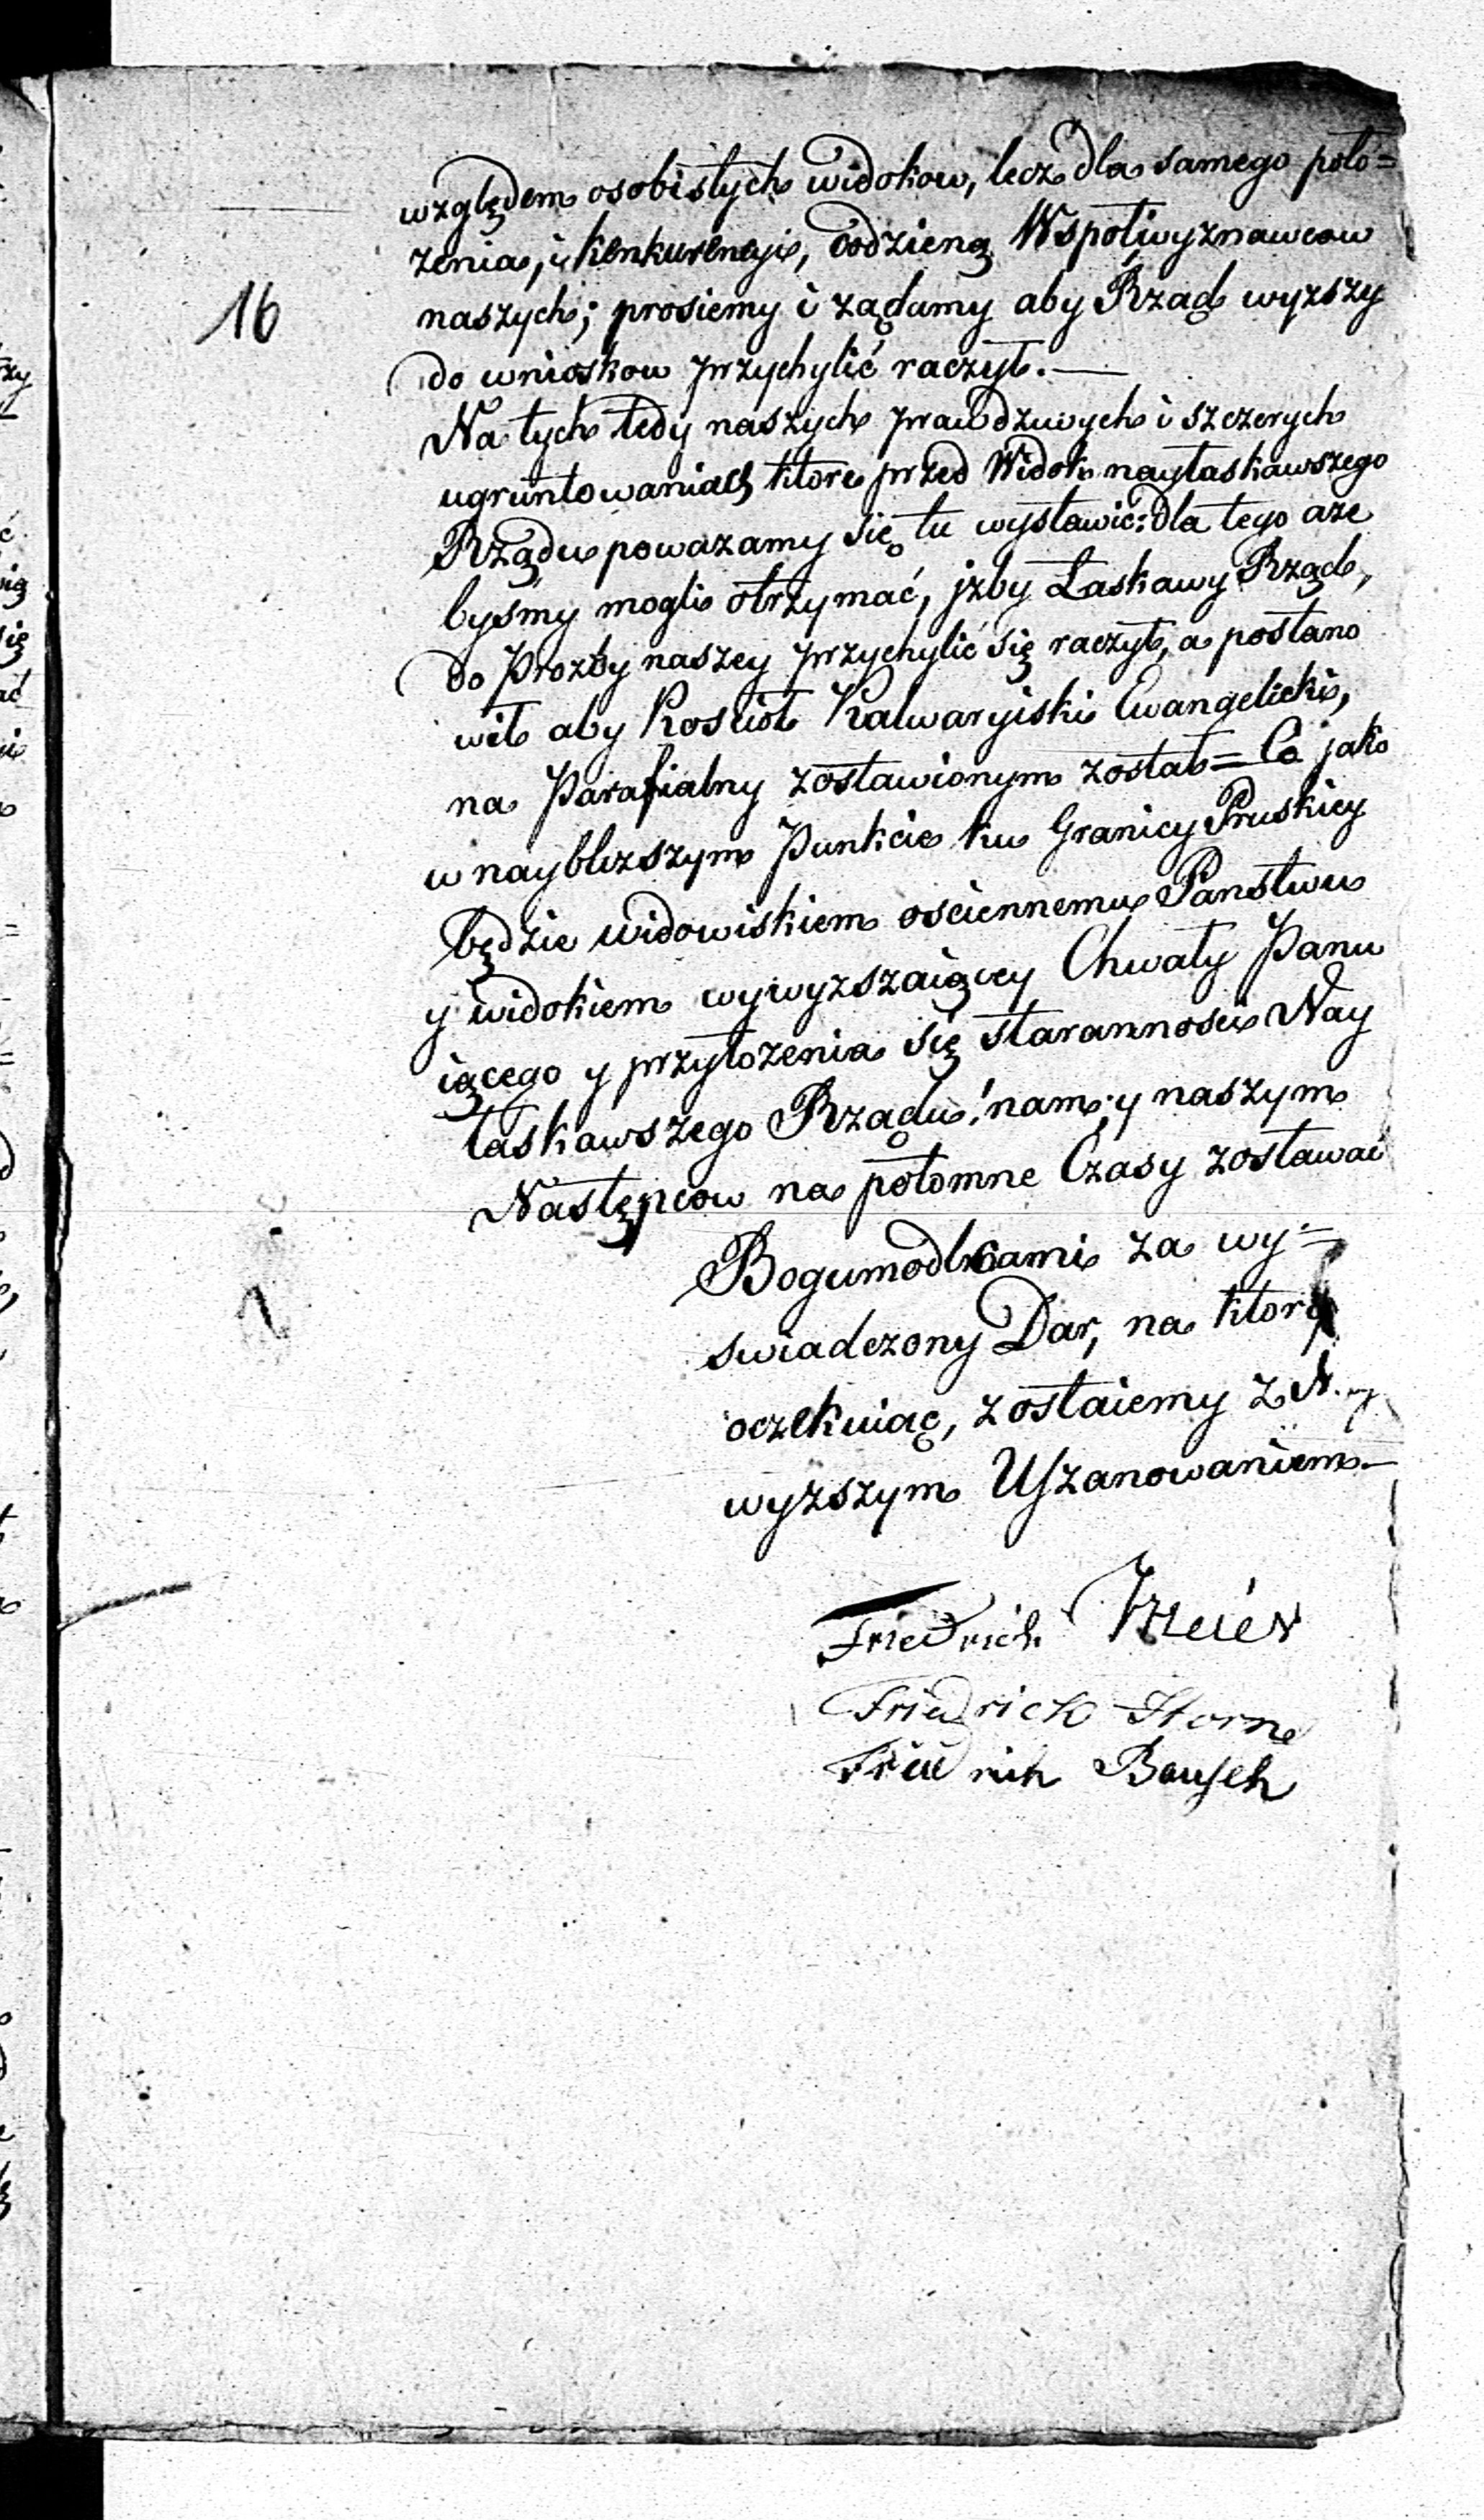 względem osobistych widokow, lecz dla samego poło=
żenia, i konkurencyi, codzieną Wspołwyznawcow
16
naszych; prosiemy i ządamy aby Rząd wyzszy
do wnioskow przychylić raczył.—
Na tych tedy naszych prawdziwych i szczerych
ugruntowaniach ktore przed Widok nayłaskawszego
Rządu powazamy się tu wystawić: dla tego aże
byśmy mogli otrzymać, jżby Łaskawy Rząd,
do Prozby naszey przychylić się raczył, a postano
wił aby Kosciół Kalwaryiski Ewangelicki,
na Parafialny zostawionym został = Co jako
w nayblizszym Punkcie ku Granicy Pruskiey
będzie widowiskiem osciennemu Panstwu
y widokiem wywyzszaiącey Chwały Panu
iącego y przyłozenia się starannosci Nay
łaskawszego Rządu! nam; y naszym
Następcow na potomne Czasy zostawać
Bogumodlcami za wy=
swiadczony Dar, na ktory
oczekuiąc, zostaiemy z
wyzszym Uszanowaniem—
Friedrich
Friedrich Storm
Friedrich Bausch